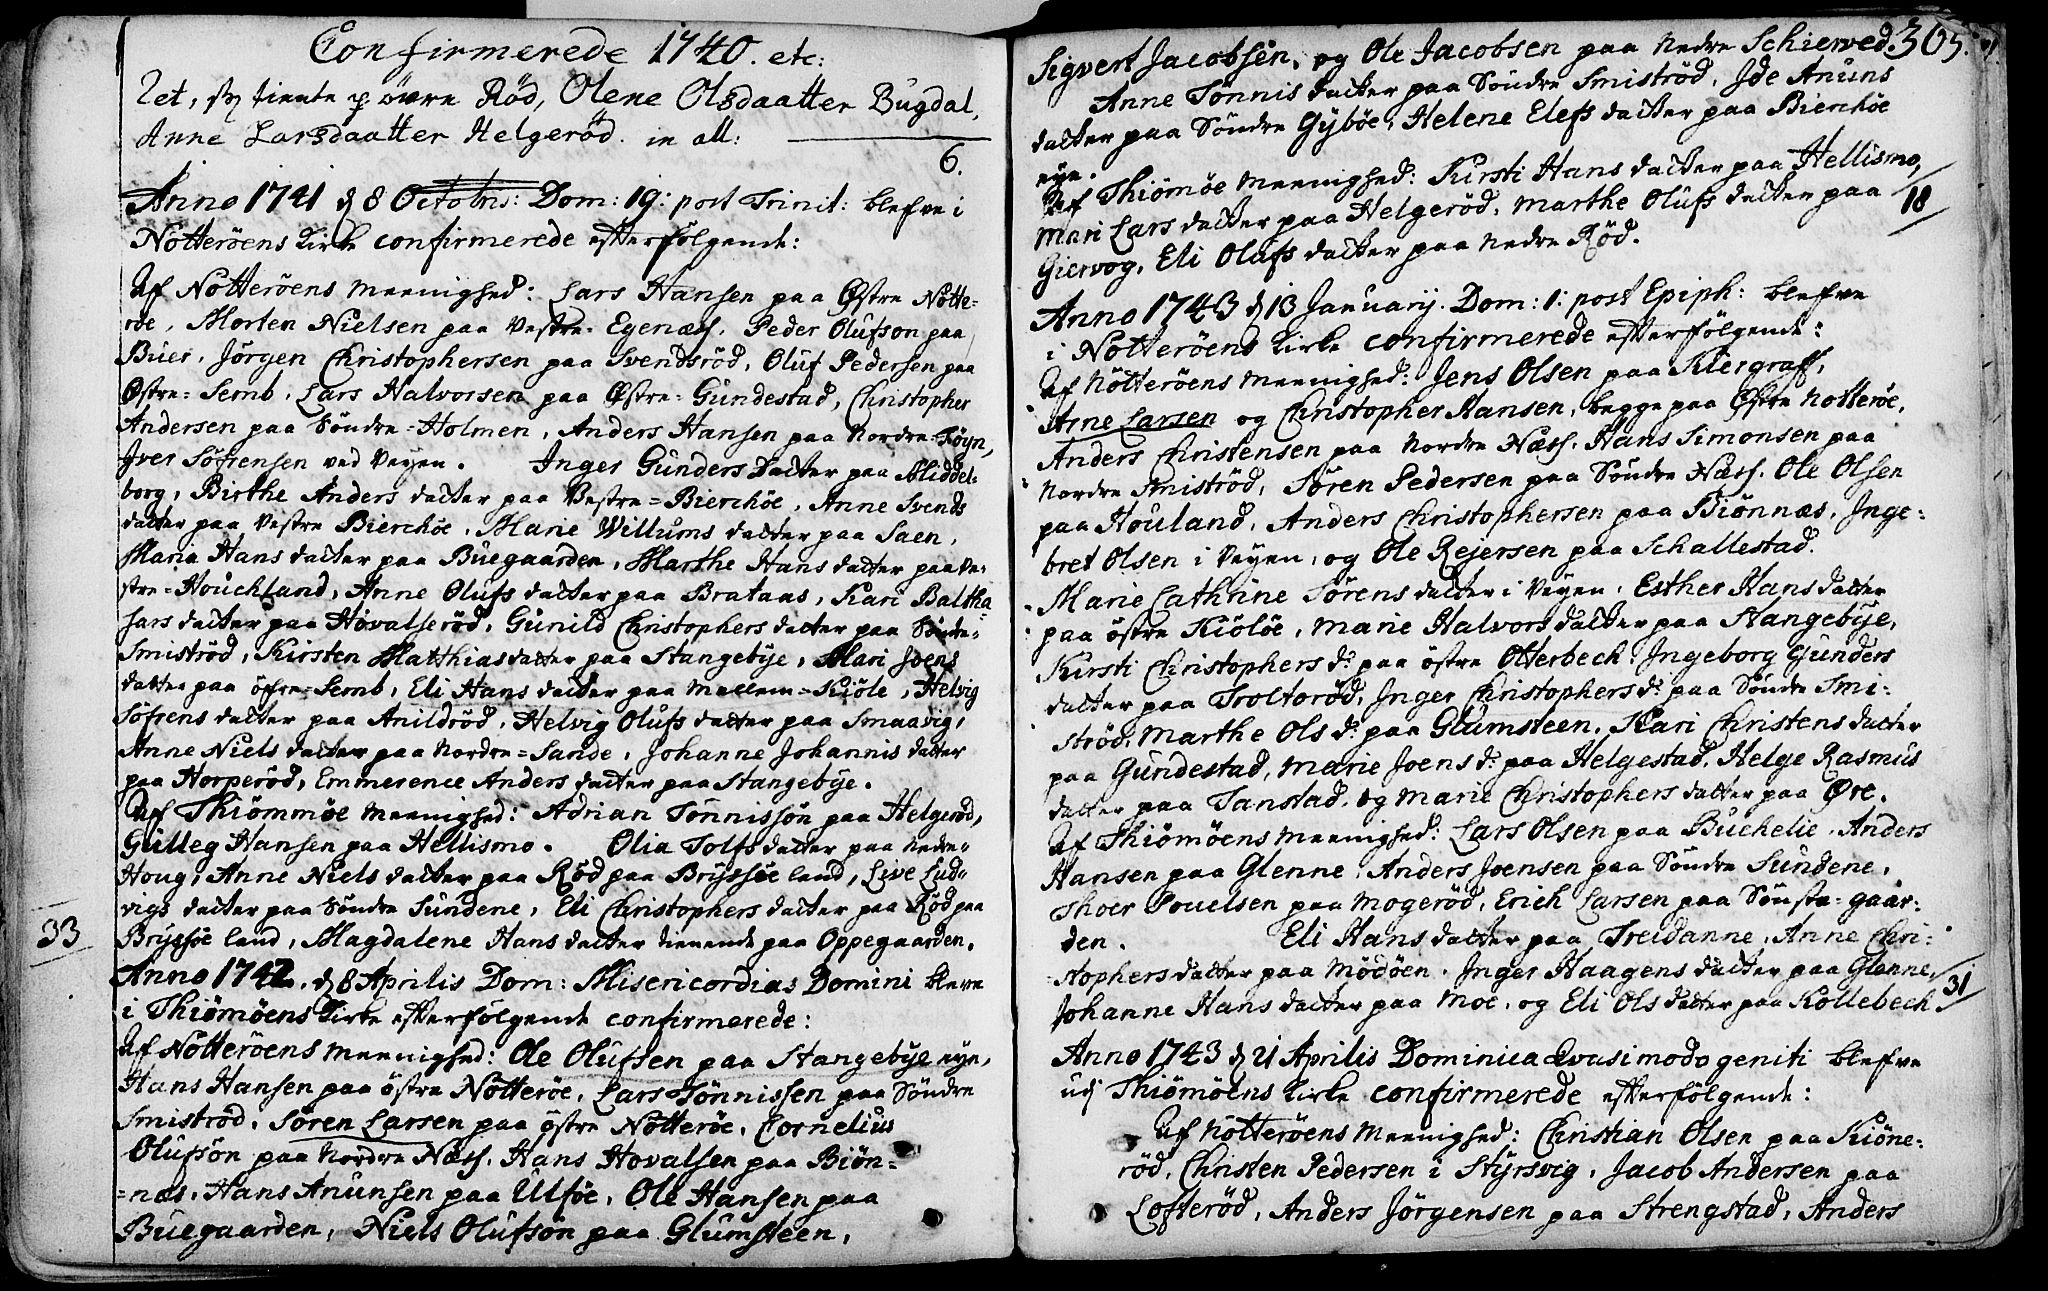 Confirmerede 1740. etc:
Zet, tiente p. övre Röd, Olene Olsdaatter Bugdal,
Anne Larsdaatter Helgeröd. in all:
6.
Anno 1741 d 8 Octobris: Dom: 19: post Trinit: blefve i
Nötteröens Kirke confirmerede efterfölgende:
Af Nötteröens Meenighed: Lars Hansen paa Østre Nötte=
röe, Morten Nielsen paa Vestre= Egenæss. Peder Olufson paa
Buer. Jörgen Christophersen paa Svendsröd, Oluf Pedersen paa
Østre= Semb. Lars Halvorsen paa Østre= Gundestad, Christopher
Andersen paa Söndre=Holmen, Anders Hansen paa Nordre=Töyn,
Iver Söfrensen ved Veyen. Inger Gunders Datter paa Middel=
borg, Birthe Anders datter paa Vestre=Bierchöe, Anne Svends
datter paa Vestre Bierchöe, Marie Willums datter paa Saen,
Maria Hans datter paa Buegaarden, Marthe Hans datter paa Ve=
stre=Houchland, Anne Olufs datter paa Brataas, Kari Baltha=
sars datter paa Hovalseröd, Gunild Christophers datter paa Söndre=
Smiströd, Kirsten Matthias datter paa Stangebye, Mari Joens
datter paa öfre=Semb, Eli Hans datter paa Mellem=Kiöle, Helvig
Söfrens datter paa Anildröd, Helvig Olufs datter paa Smaavig,
Anne Niels datter paa Nordre=Sande, Johanne Johannis datter
paa Horperöd, Emmerence Anders datter paa Stangebye.
Af Thiömmöe Meenighed: Adrian Tönnissön paa Helgeröd,
Gulleg Hansen paa Hellismo. Olia Tolfs datter paa Nedre=
Houg, Anne Niels datter paa Röd paa Bryssöe land, Live Lud=
vigs datter paa Söndre Sundene, Eli Christophers datter paa Röd paa
Bryssöe land, Magdalene Hans datter tienende paa Oppegaarden.
33
Anno 1742. d 8 Aprilis Dom: Misericordias Domini bleve
i Thiömöens Kirke efterfölgende confirmerede:
Af Nötteröens Meenighed: Ole Olufsen paa Stangebye eye,
Hans Hansen paa östre Nötteröe, Lars Tönnissen paa Söndre
Smiströd, Sören Larsen paa östre Nötteröe, Cornelius
Olufsön paa Nordre Næss. Hans Hovalsen paa Biön=
=næs. Hans Anunsen paa Ulföe, Ole Hansen paa
Buegaarden, Niels Olufsön paa Glumsteen,
305.
Sigvert Jacobsen, og Ole Jacobsen paa Nedre Schierved.
Anne Tönnis datter paa Söndre Smiströd, Ide Anuns
datter paa Söndre Gyböe, Helene Elefs datter paa Bierchöe
eye.
Af Thiömöe Meenighed: Kirsti Hans datter paa Hellismo,
Mari Lars datter paa Helgeröd, Marthe Olufs datter paa
Giervog, Eli Olufs datter paa Nedre Röd.
18
Anno 1743 d 13 Januarij. Dom: 1: post Epiph: blefve
i Nötteröens Kirke confirmerede efterfölgende:
Af Nötteröens Meenighed: Jens Olsen paa Klergraff,
Arne Larsen og Christopher Hansen, begge paa Østre Nötteröe,
Anders Christensen paa Nordre Næss. Hans Simonsen paa
Nordre Smiströd, Sören Pedersen paa Söndre Næss. Ole Olsen
paa Houland, Anders Christophersen paa Biönnæs, Inge=
bret Olsen i Veyen, og Ole Rejersen paa Schallestad.
Marie Cathrine Sörens datter i Veyen, Esther Hans datter
paa östre Kiölöe, Marie Halvors datter paa Hangebye,
Kirsti Christophers dr. paa östre Otterbech, Ingeborg Gunders
datter paa Troltoröd, Inger Christophers dr. paa Söndre Smi=
ströd, Marthe Ols dr. paa Glumsteen, Kari Christens datter
paa Gundestad, Marie Joens dr. paa Helgestad, Helge Rasmus
datter paa Tanstad, og Marie Christophers datter paa Øre.
Af Thiömöens Meenighed: Lars Olsen paa Buehelie. Anders
Hansen paa Glenne, Anders Joensen paa Söndre Sundene,
Thoer Pouelsen paa Mogeröd, Erich Larsen paa Sönste=gaar=
den. Eli Hans datter paa Treidanne, Anne Chri=
stophers datter paa Mödöen. Inger Haagens datter paa Glenne,
Johanne Hans datter paa Moe, og Eli Ols datter paa Kollebech.
31
Anno 1743 d 21 Aprilis Dominica Qvasimodogeniti blefve
udj Thiömöens Kirke confirmerede efterfölgende:
Af Nötteröens Meenighed: Christian Olsen paa Kiöne=
röd, Christen Pedersen i Styrsvig, Jacob Andersen paa
Lofteröd, Anders Jörgensen paa Strengstad, Anders